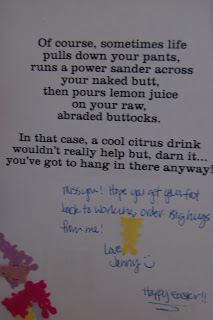 Of course, sometimes life
pulls down your pants,
runs a power sander across
your naked butt,
then pours lemon juice
on your raw,
abraded buttocks.
In that case, a cool citrus drink
wouldn't really help but, darn it...
you've got to hang in there anyway!
Miss you! Hope you get your foot
back to working order. Big hugs
from me!
Love
Jenny
Happy Easter!!